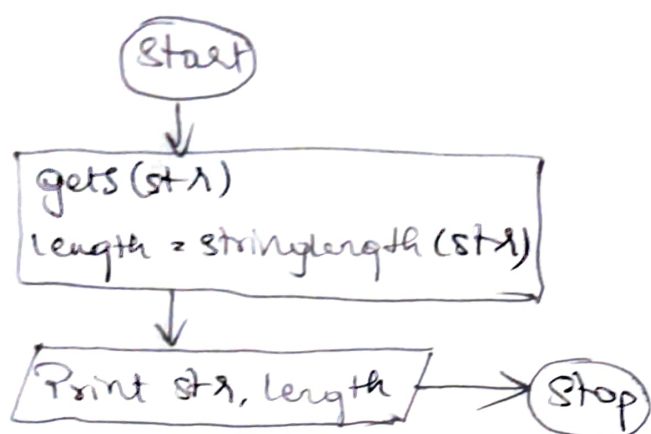 Start
gets (str)
length = stringlength (str)
Print str, length
Stop